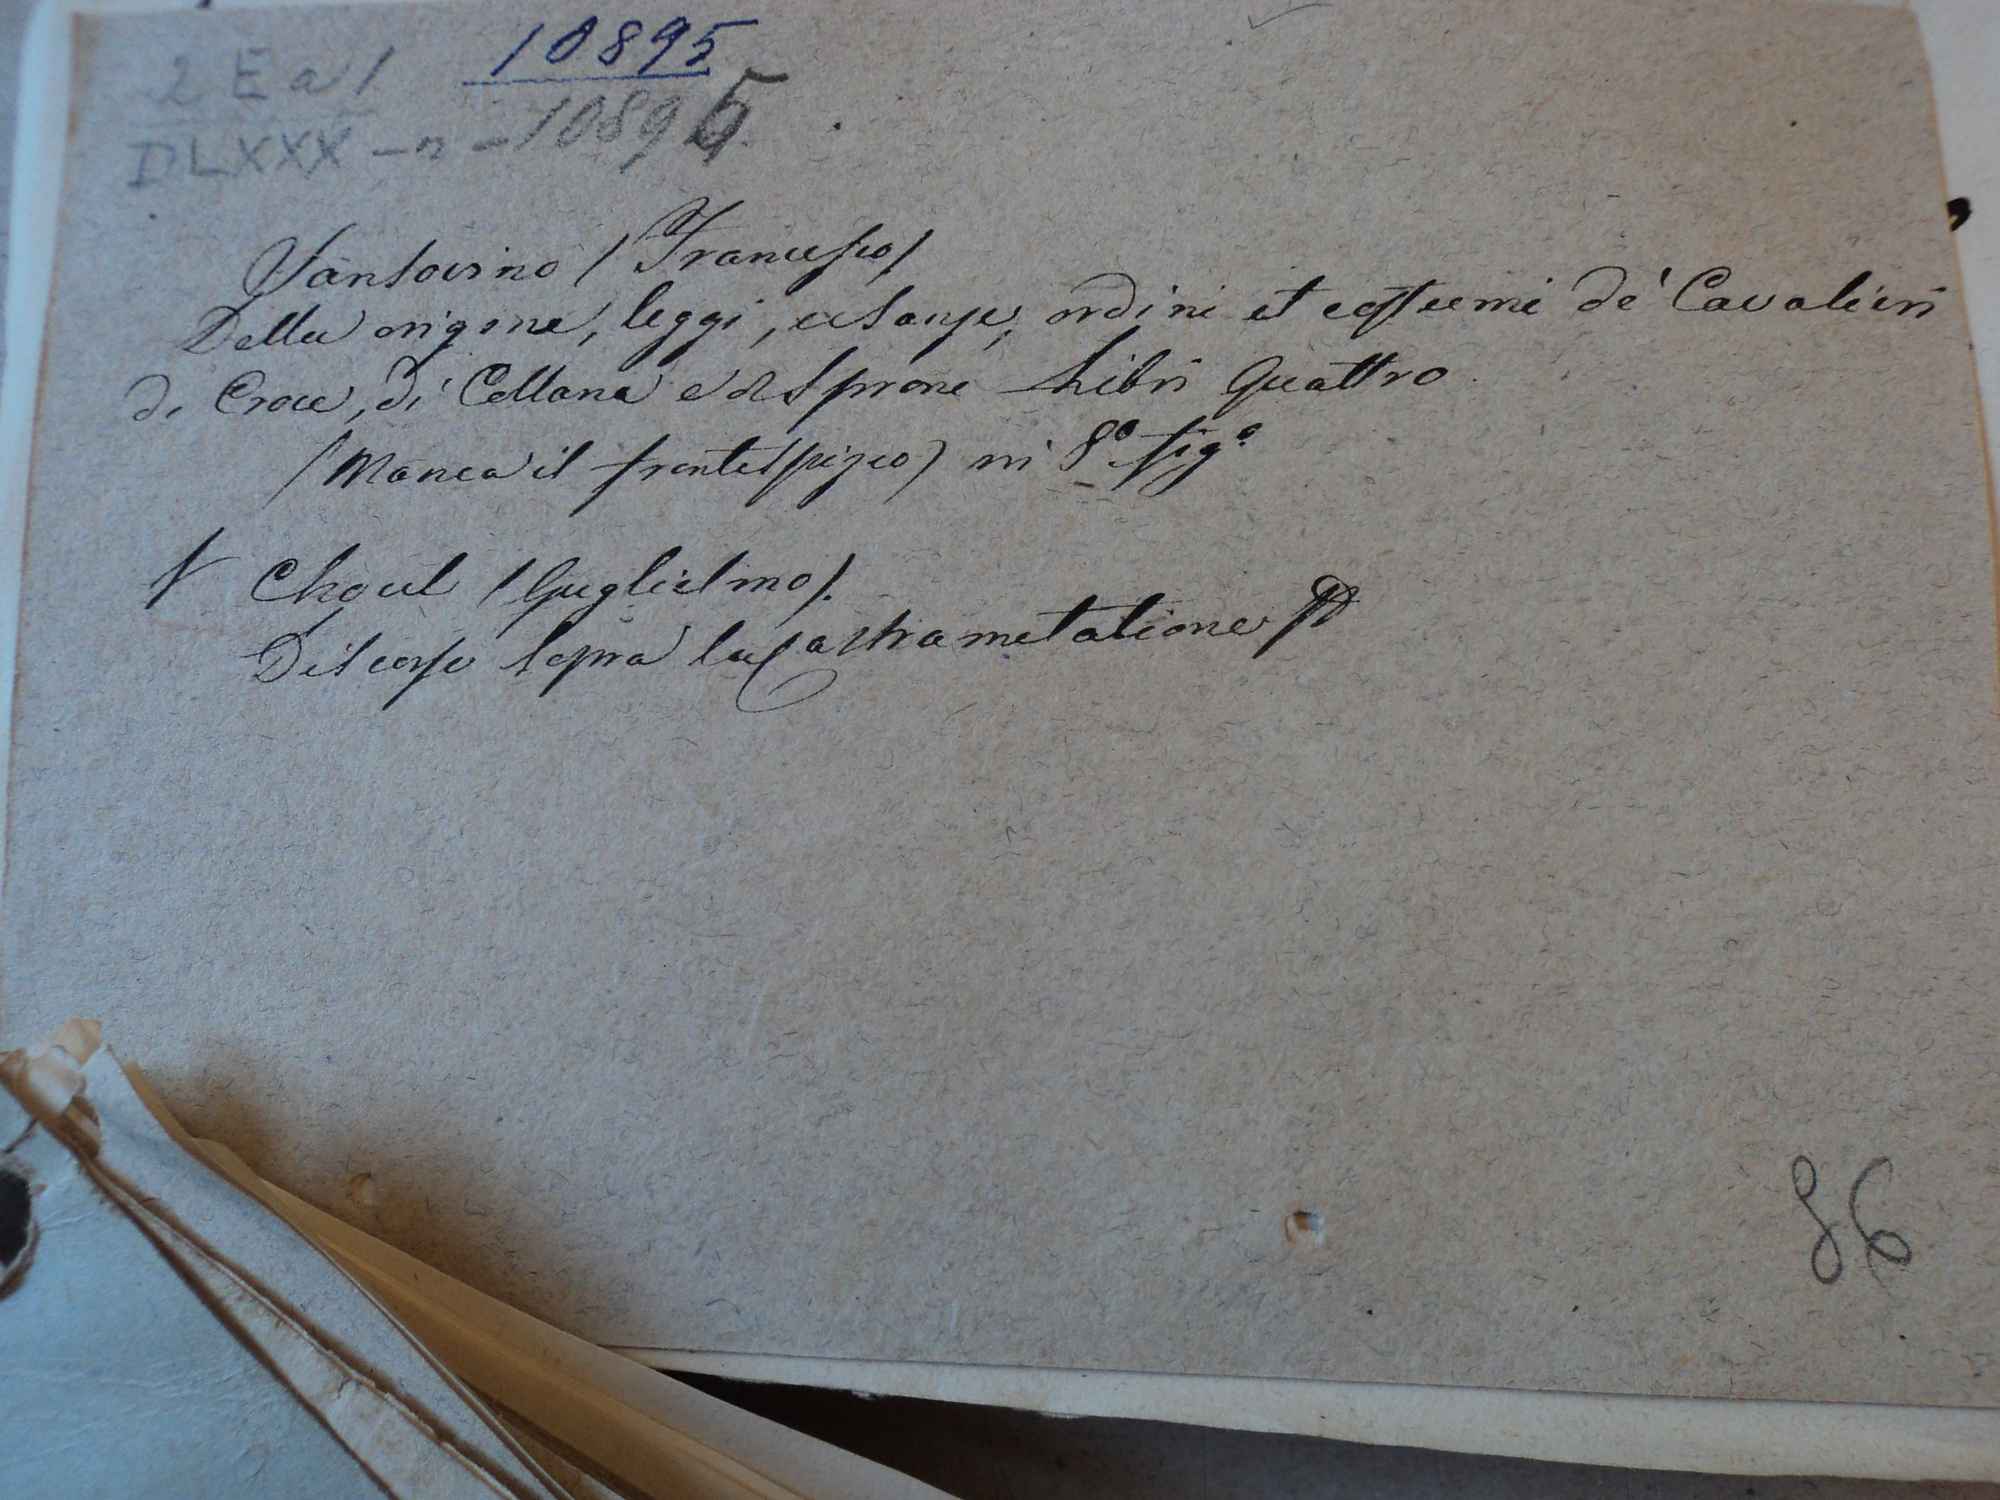 10895
2 E a 1
DLXXX - n - 10895.
Sansovino (Francesco)
Della origine, leggi, usanze, ordini et costumi de' Cavalieri
di Croce, di Collana e di Sprone Libri Quattro
(Manca il frontespizio) in 8º figº
Choul (Guglielmo).
Discorso sopra la Castrametatione
86